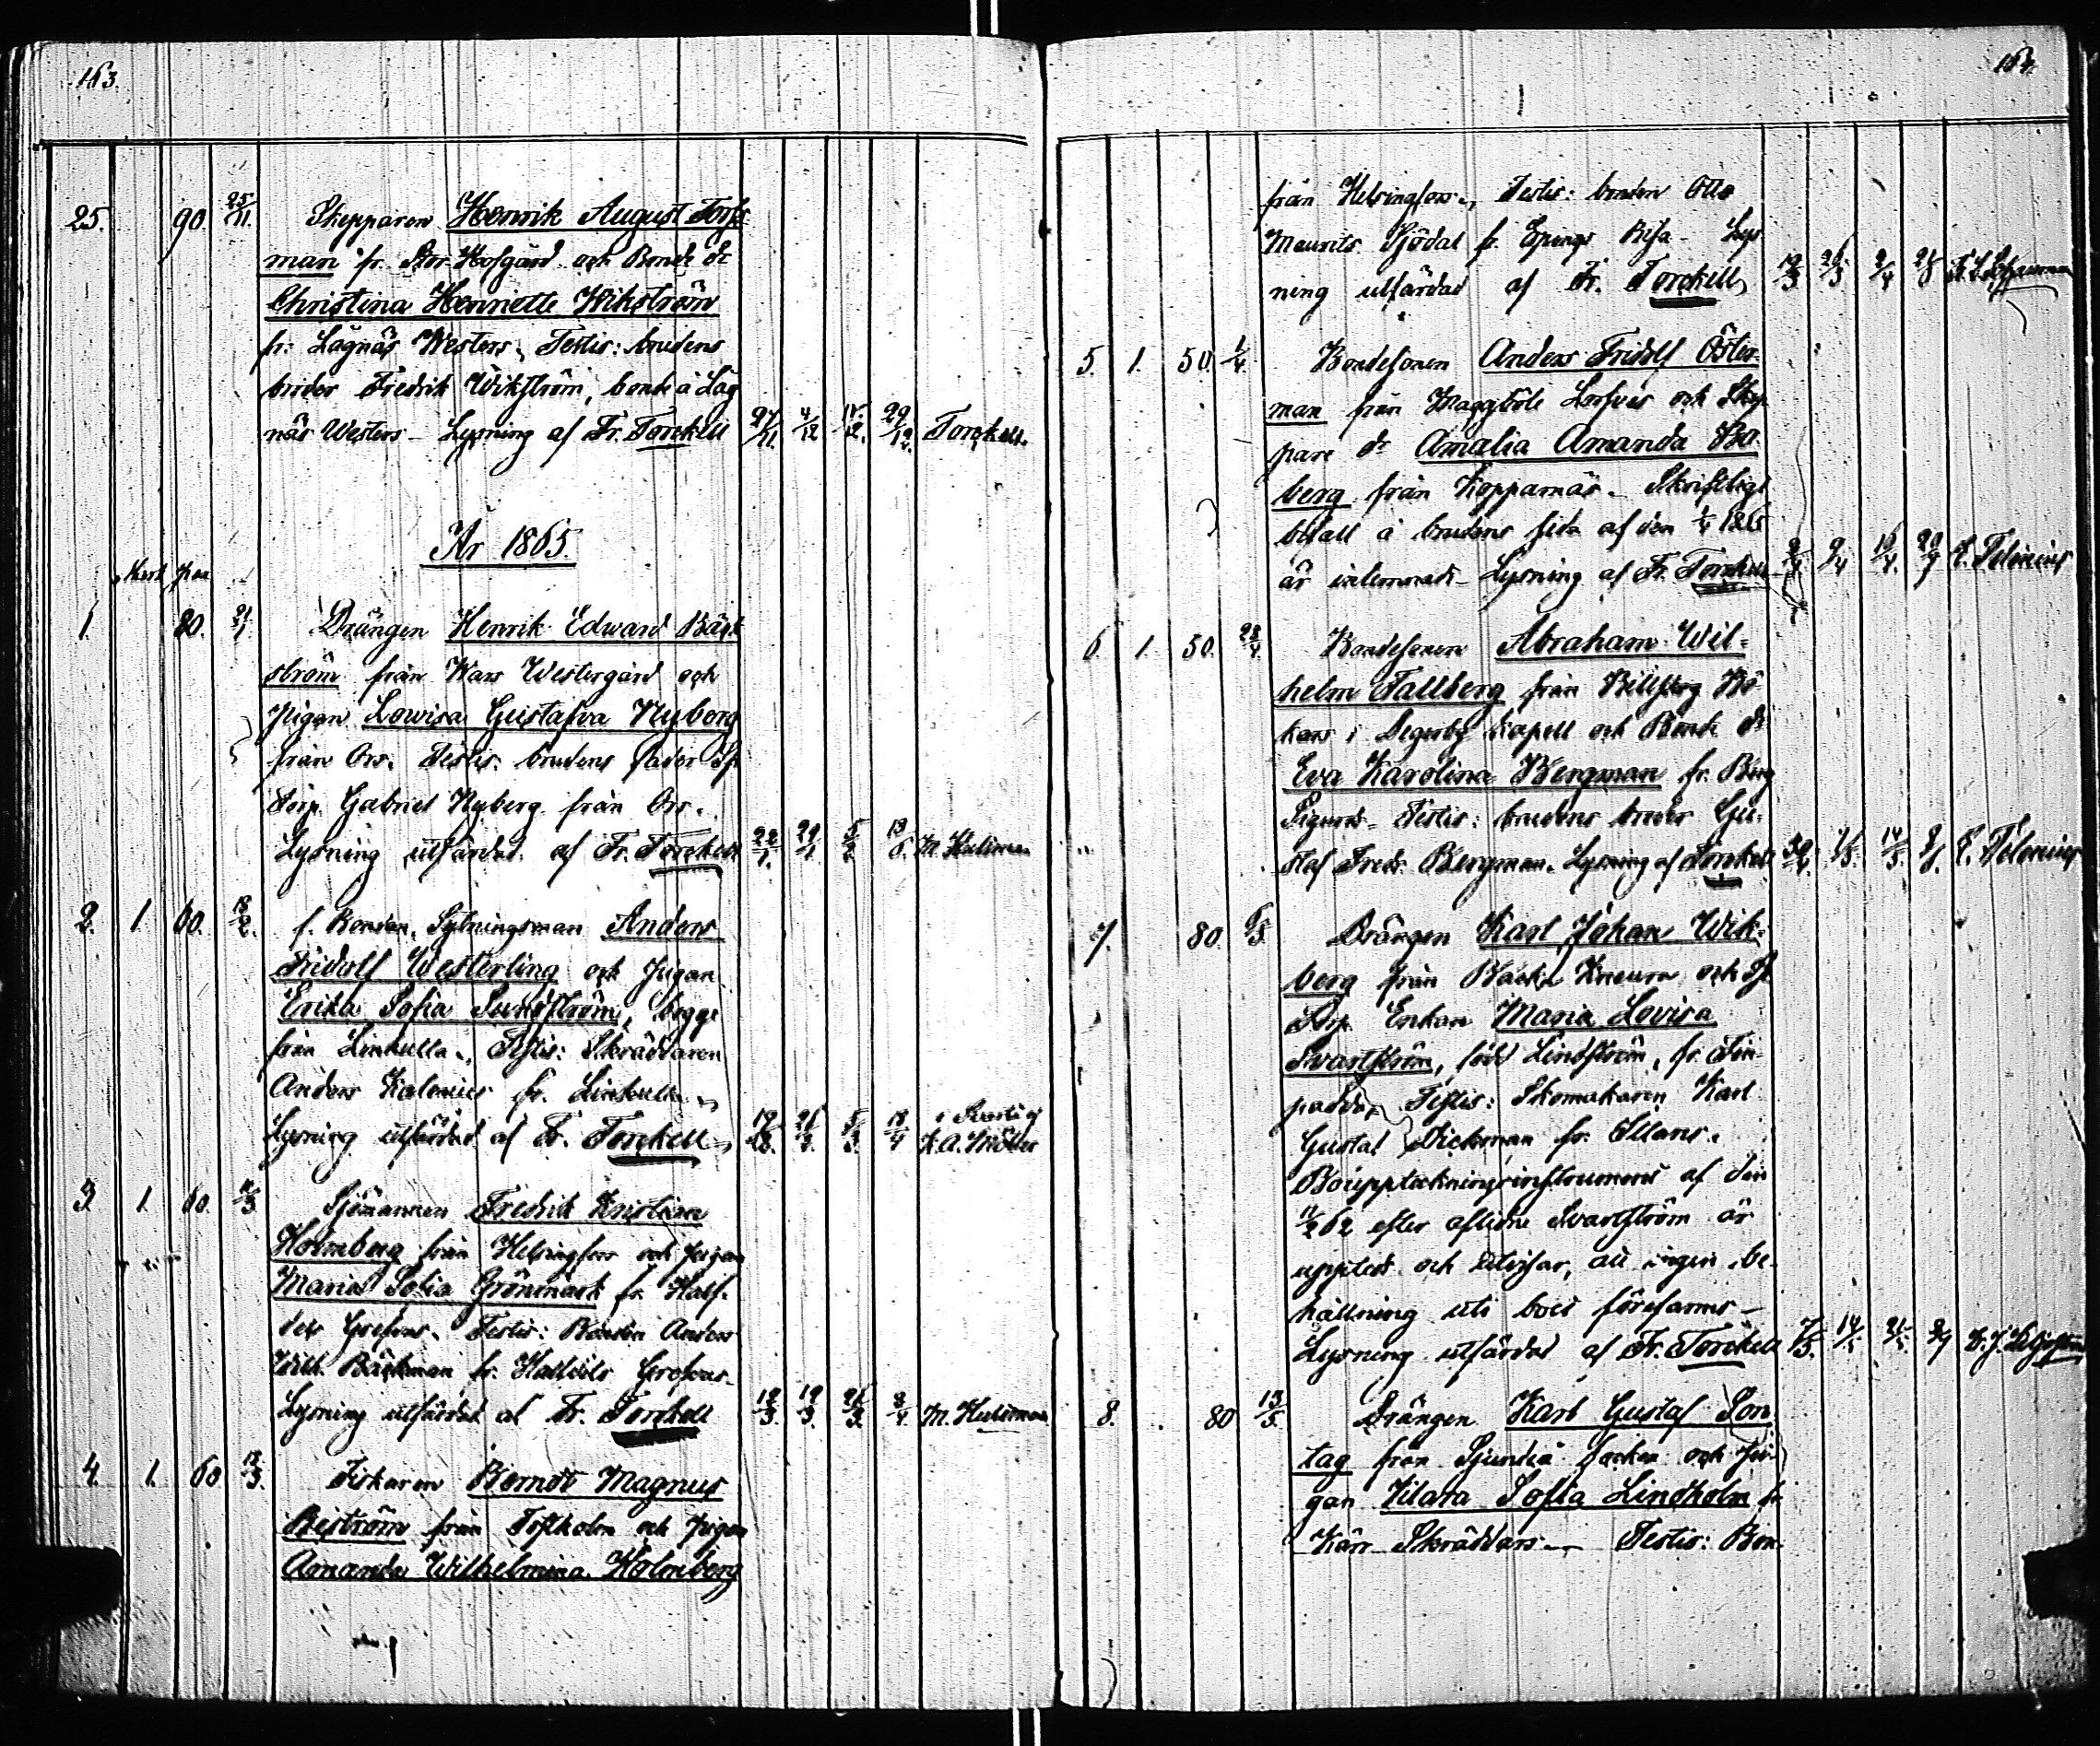 163.
25. 90 25/11. Skepparen Henrik August Forss
man fr. Stor Hofgård och Bonde dr
Christina Henriette Wikström
fr. Lågnäs Westers. Testis: brudens
broder Fredrik Wikström, bonde å Låg
näs Westers - Lysning af Fr. Torckell 27/11. 4/12 11/12. 29/12. Torckell.
År 1865.
Mark pen
1. 80. 21/1. Drängen Henrik Edward Bäck
ström från Wars Westergård och
Pigan Lowisa Gustafva Nyberg
från Ors. Testis: brudens fader Sp
torp. Gabriel Nyberg från Ors.
Lysning utfärdad af Fr. Torckell 22/1. 29/1 5/2. 18/6. M. Hulimean
2. 1. 60. 18/2. f. Bonden, Sytningsman Anders
Fridolf Westerling och Pigan
Erika Sofia Sundström, begge
från Linkulla. Testis: Skräddaren
Anders Kalenius fr. Linkulla
Lysning utfärdad af Fr. Torckell 19/2. 26/2. 5/3. 18/4 i Svartå af
K. A. Möller
3. 1. 60. 11/3 Sjömannen Fredrik Kristian
Holmberg från Helsingfors och Pigan
Maria Sofia Grönmark fr. Half-
dels Grefvas. Testis: Bonden Anders
Wilh. Bäckman fr. Halfdels Grefvas.
Lysning utfärdad af Fr. Torckell 12/3. 19/3. 26/3. 8/4 M. Hulimean
4. 1. 60 18/3. Fiskaren Berndt Magnus
Biström från Toftholm och Pigan
Amanda Wilhelmina Holmberg
164.
från Helsingfors. Testis: bonden Otto
Maurits Sjödal fr. Espings Bisa - Lys
ning utfärdad af Fr. Torckell 19/3 26/3 2/4 28/5 F. L. Schauman
5. 1. 50. 1/4. Bondesonen Anders Fridolf Öster-
man från Maggböle Lorfvis och Skep
pare dr Amalia Amanda Bo
berg från Kopparnäs. Skriftligt
bifall å brudens sida af den 1/4 1865
är inlemnadt - Lysning af Fr. Torckell 2/4 9/4 16/4. 20/7 E. Telenius
6. 1. 50. 28/4. Bondesonen Abraham Wil-
helm Fallberg från Billskog Bö
kars i Degerby Kapell och Bonde dr
Eva Karolina Bergman fr. Berg
Sigurds - Testis: brudens broder Gu-
staf Fredr. Bergman. Lysning af Torckell 30/4. 7/5. 14/5. 8/6. E. Telenius
7. 80. 6/5. Drängen Karl Johan Wik-
berg från Bäck Kneura och Sp
Torp. Enkan Maria Lovisa
Svartström, född Lindström, fr. Fin-
padda. Testis: Skomakaren Karl
Gustaf Dickman fr. Ellans.
Bouppteckningsinstrument af den
11/2 62 efter aflidne Svartström är
uppteed och utvisar, att ingen be-
hållning uti boet förefanns -
Lysning utfärdad af Fr. Torckell 7/5. 14/5. 21/5. 2/7
8. 80 13/5. Drängen Karl Gustaf Son
tag från Sjundeå Backa och Pi-
gan Klara Sofia Lindholm fr.
Kärr Skräddars. Testis: Bon-